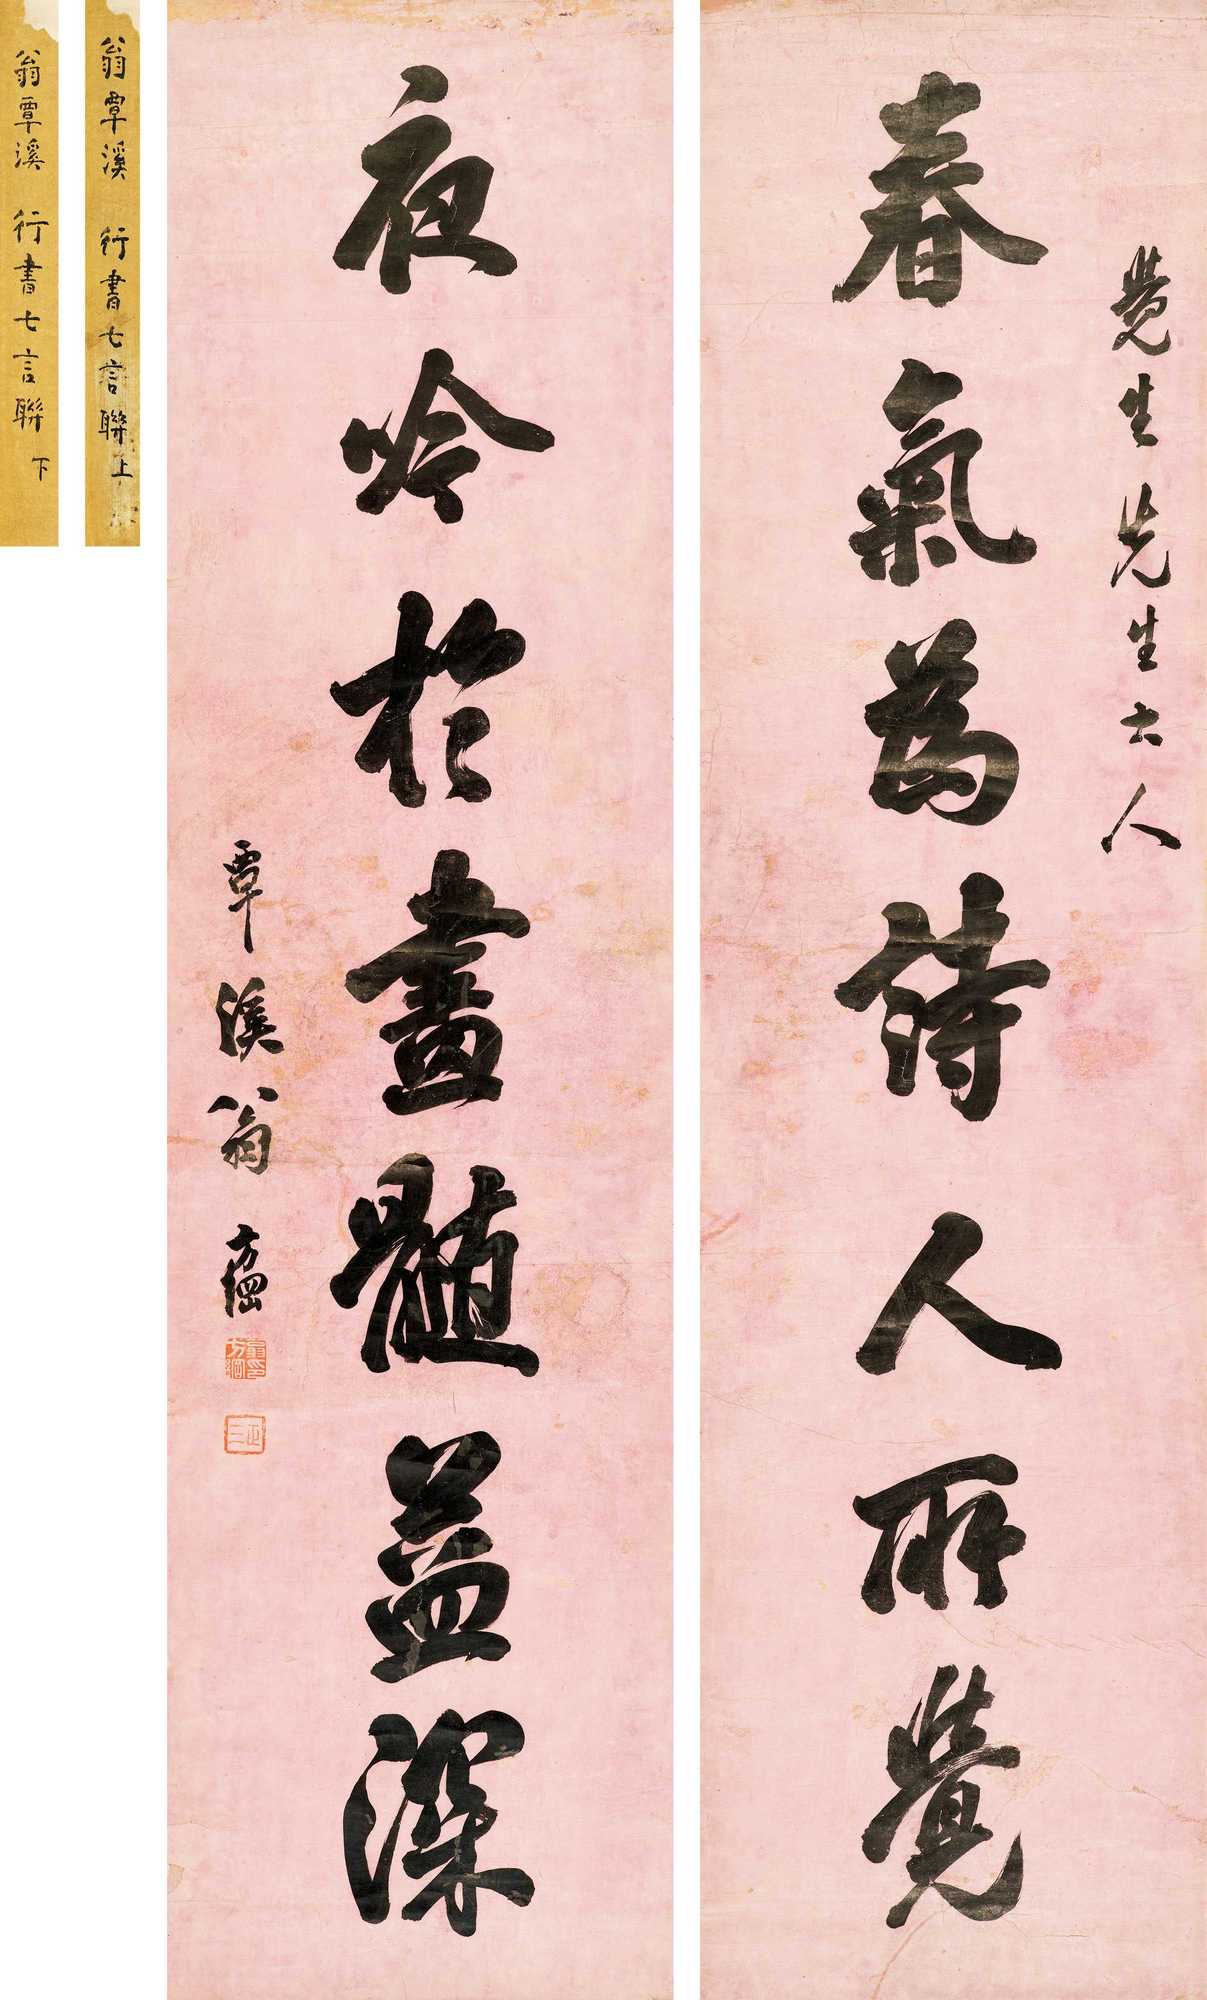 覺生先生大人
春氣為詩人所覺
夜吟於畫髓益深
覃溪翁方綱
翁方綱印
正三
翁覃溪 行書七言聯 上
翁覃溪 行書七言聯 下